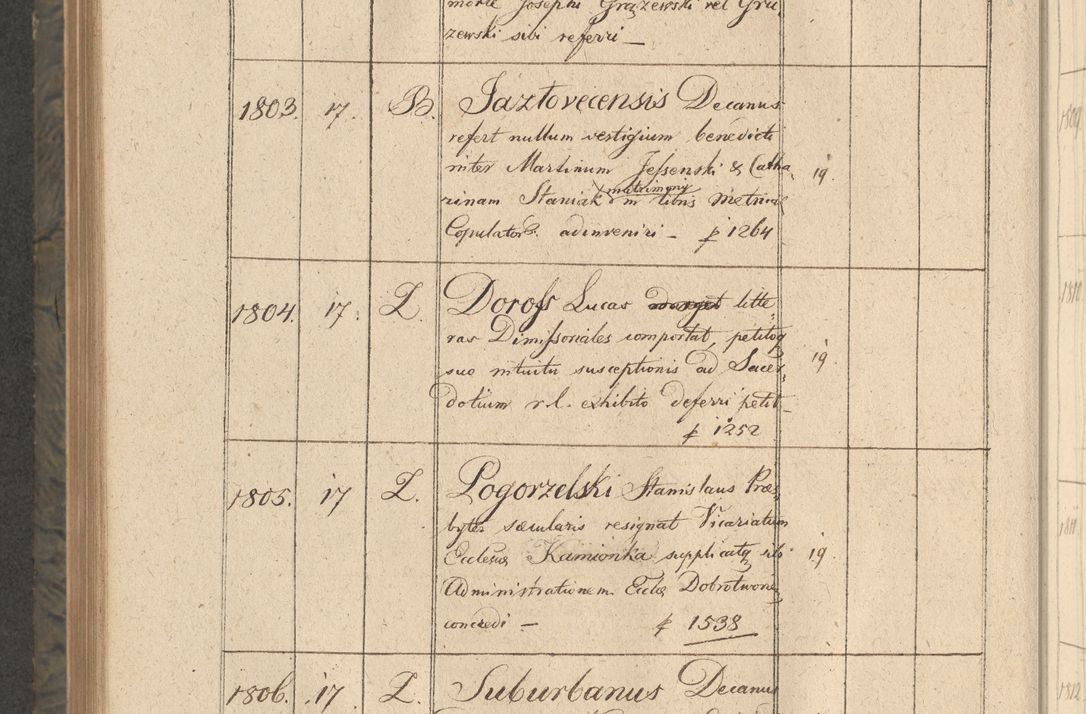 morte Josephi Grązewski vel Gru-
zewski sibi referri –
1803. 17. B. Jaztovecensis Decanus
refert nullum vestigium benedicti
inter Martinum Jeſsenski & Catha, 19.
matrimonÿ
rinam Staniak in libris metrical
Copulator. adinveniri – p 1264
1804. 17. L. Doroſs Lucas litte
ras Dimiſsoriales comportat, petitoq
suo intuitu susceptionis ad Sacer, 19
dotium r.l. exhibito deferri petit –
p 1252
1805. 17 L. Pogorzelski Stanislaus Præs,
byter sæcularis resignat Vicariatum
Ecclesiæ Kamionka supplicatq sibi 19.
Administrationem Eccłæ Dobrotwore,
concedi – p 1538
1806. 17. L. Suburbanus Decanus
1809
1810
1811
1812